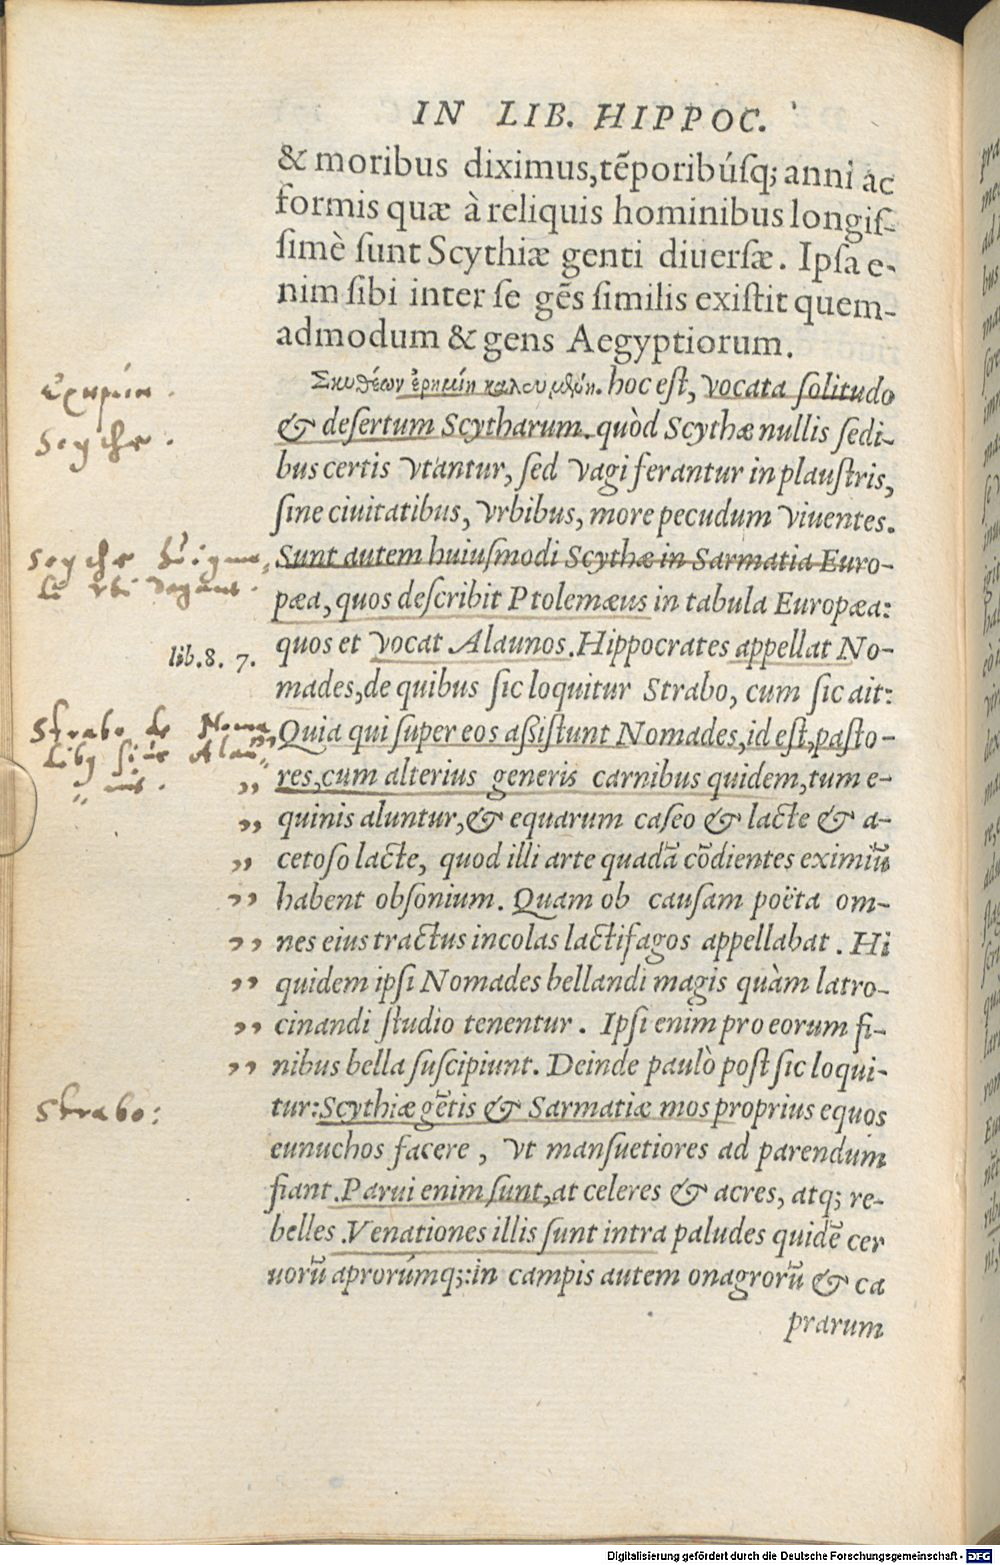 IN LIB. HIPPOC.
& moribus diximus,tẽporibúſq; anni ac
formis quæ à reliquis hominibus longiſ-
ſimè ſunt Scythiæ genti diuerſæ. Ipſa e-
nim ſibi inter ſe gẽs ſimilis exiſtit quem-
admodum & gens Aegyptiorum.
ἐρημία
Σκυθέων ἐρημίη καλουμένη. hoc eſt, vocata ſolitudo
Scythæ
& deſertum Scytharum. quòd Scythæ nullis ſedi-
bus certis vtantur, ſed vagi ferantur in plauſtris,
ſine ciuitatibus, vrbibus, more pecudum viuentes.
Scythæ
Sunt autem huiuſmodi Scythæ in Sarmatia Euro-
vbi vagant
pæa, quos deſcribit Ptolemæus in tabula Europæa:
quos et vocat Alaunos. Hippocrates appellat No-
lib.8. 7.
mades, de quibus ſic loquitur Strabo, cum ſic ait:
Strabo de Noma
„ Quia qui ſuper eos aßiſtunt Nomades, id eſt, paſto-
„ res, cum alterius generis carnibus quidem, tum e-
„ quinis aluntur, & equarum caſeo & lacte & a-
„ cetoſo lacte, quod illi arte quadã cõdientes eximiũ
„ habent obſonium. Quam ob cauſam poëta om-
„ nes eius tractus incolas lactifagos appellabat. Hi
„ quidem ipſi Nomades bellandi magis quàm latro-
„ cinandi ſtudio tenentur. Ipſi enim pro eorum fi-
„ nibus bella ſuſcipiunt. Deinde paulò poſt ſic loqui-
Strabo:
tur: Scythiæ gẽtis & Sarmatiæ mos proprius equos
eunuchos facere, vt manſuetiores ad parendum
fiant. Parui enim ſunt, at celeres & acres, atq; re-
belles. Venationes illis ſunt intra paludes quidẽ cer
uorũ aprorúmq;: in campis autem onagrorũ & ca
prarum
Digitalisierung gefördert durch die Deutsche Forschungsgemeinschaft - DFG